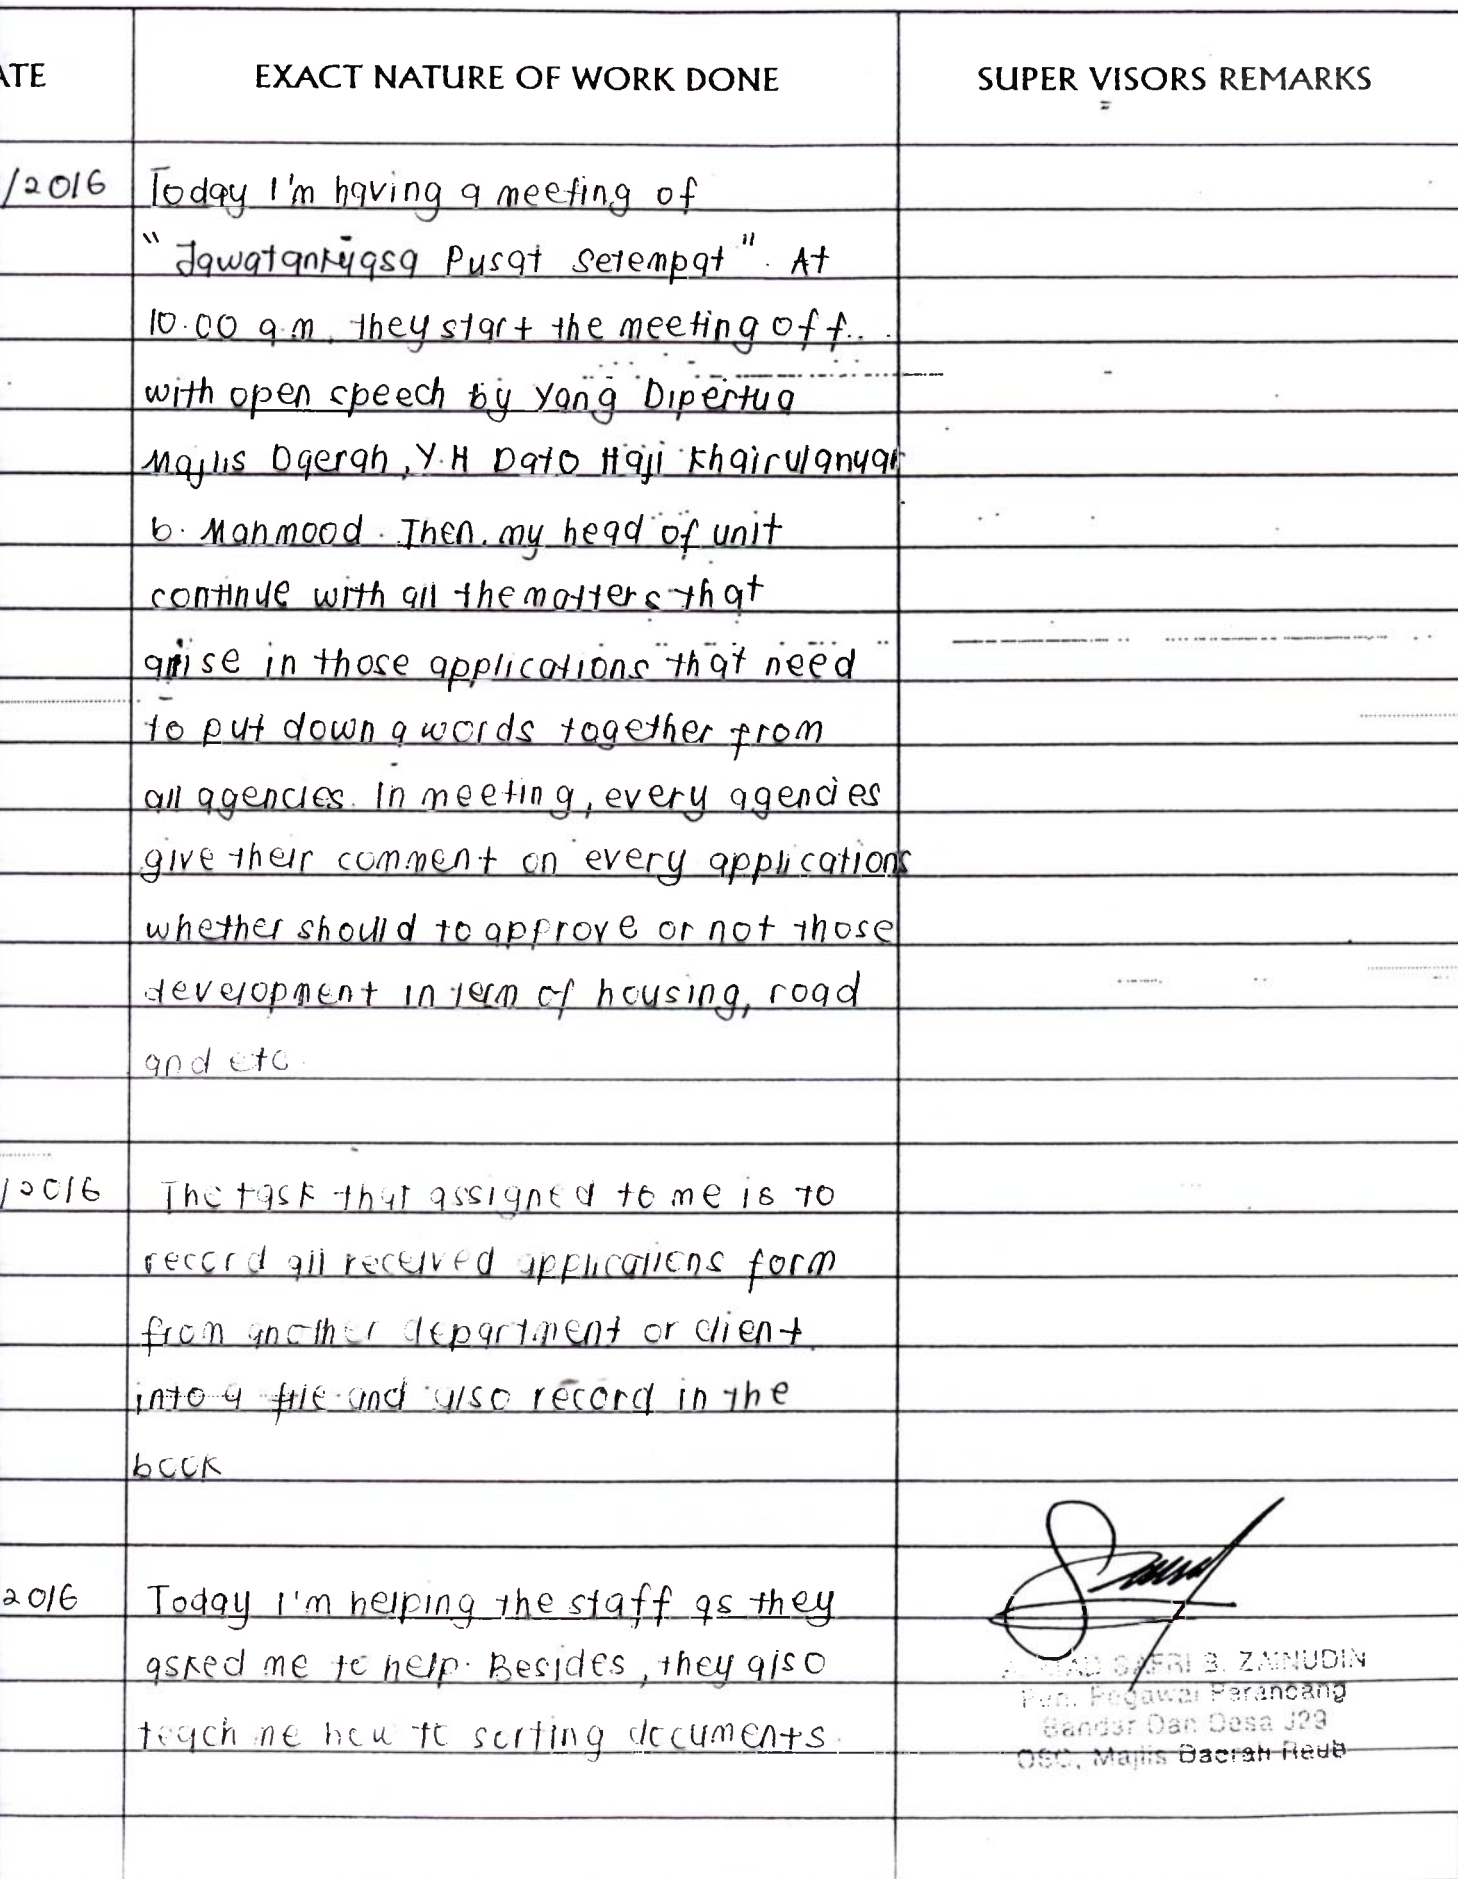 ATE EXACT NATURE OF WORK DONE SUPER VISORS REMARKS
/2016 Today I'm having a meeting of
"Jawatankuasa Pusat Setempat". At
10.00 a.m, they start the meeting off
with open speech by Yang Dipertua
Majlis Daerah, Y.H Dato Haji Khairulanuar
b. Mahmood. Then, my head of unit
continue with all the matters that
arise in those applications that need
to put down a words together from
all agencies. In meeting, every agencies
give their comment on every applications
whether should to approve or not those
development in term of housing, road
and etc.
/2016 The task that assigned to me is to
record all received applications form
from another department or client
into a file and also record in the
book
2016 Today I'm helping the staff as they
asked me to help. Besides, they also
teach me how to sorting documents.
SAFRI B. ZAINUDIN
Pen. Pegawai Perancang
Bandar Dan Desa J29
OSC, Majlis Daerah Raub